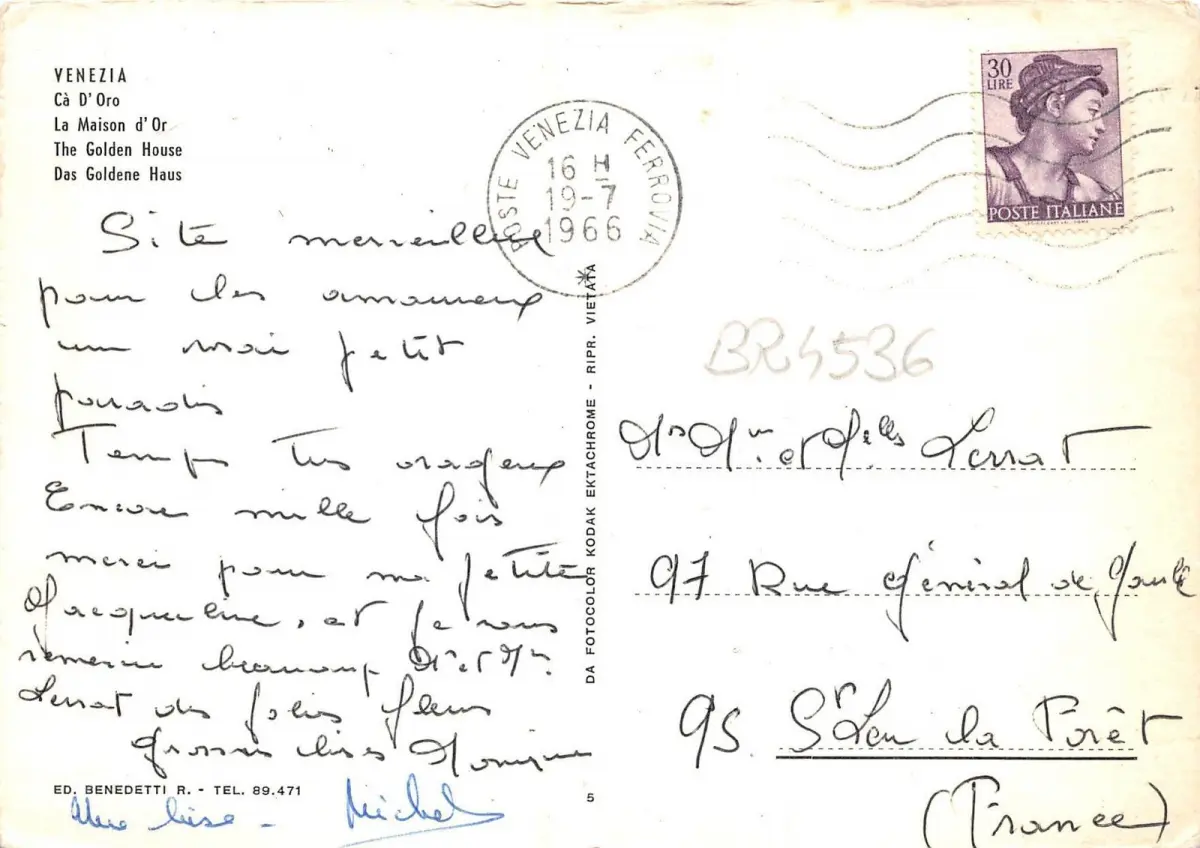 VENEZIA
Cà D'Oro
La Maison d'Or
The Golden House
Das Goldene Haus
30
LIRE
POSTE ITALIANE
POSTE VENEZIA FERROVIA
16 H
19-7
1966
Site merveilleux
pour les amoureux
un vrai petit
paradis
Temps très orageux
Encore mille fois
merci pour ma petite
Jacqueline, et je vous
remercie beaucoup Mr et Mme
Lerrat des jolies fleurs
Grosses bises Monique
Une bise - Michel
ED. BENEDETTI R. - TEL. 89.471
DA FOTOCOLOR KODAK EKTACHROME - RIPR. VIETATA
5
BR4536
Mr Mme et Melles Lerrat
97 Rue Général de Gaulle
95. St Leu la Forêt
(France)